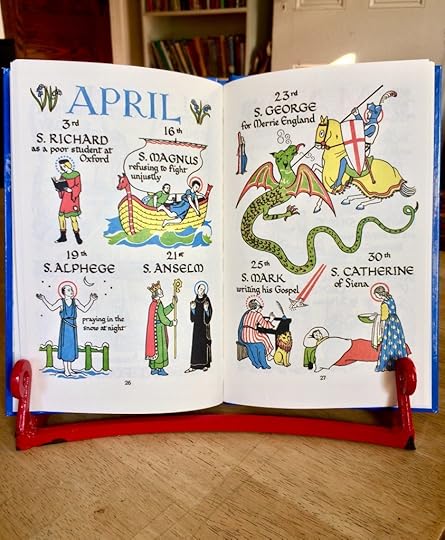 APRIL
3rd
S. RICHARD
as a poor student at
Oxford
16th
S. MAGNUS
refusing to fight
unjustly
19th
S. ALPHEGE
praying in the
snow at night
21st
S. ANSELM
26
23rd
S. GEORGE
for Merrie England
25th
S. MARK
writing his Gospel
30th
S. CATHERINE
of Siena
27